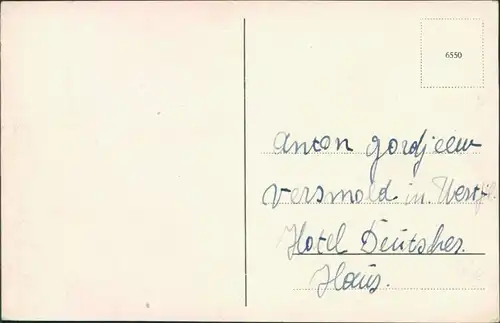 6550
Anton Gordjeew
Versmold in Westf.
Hotel Deutsches
Haus.